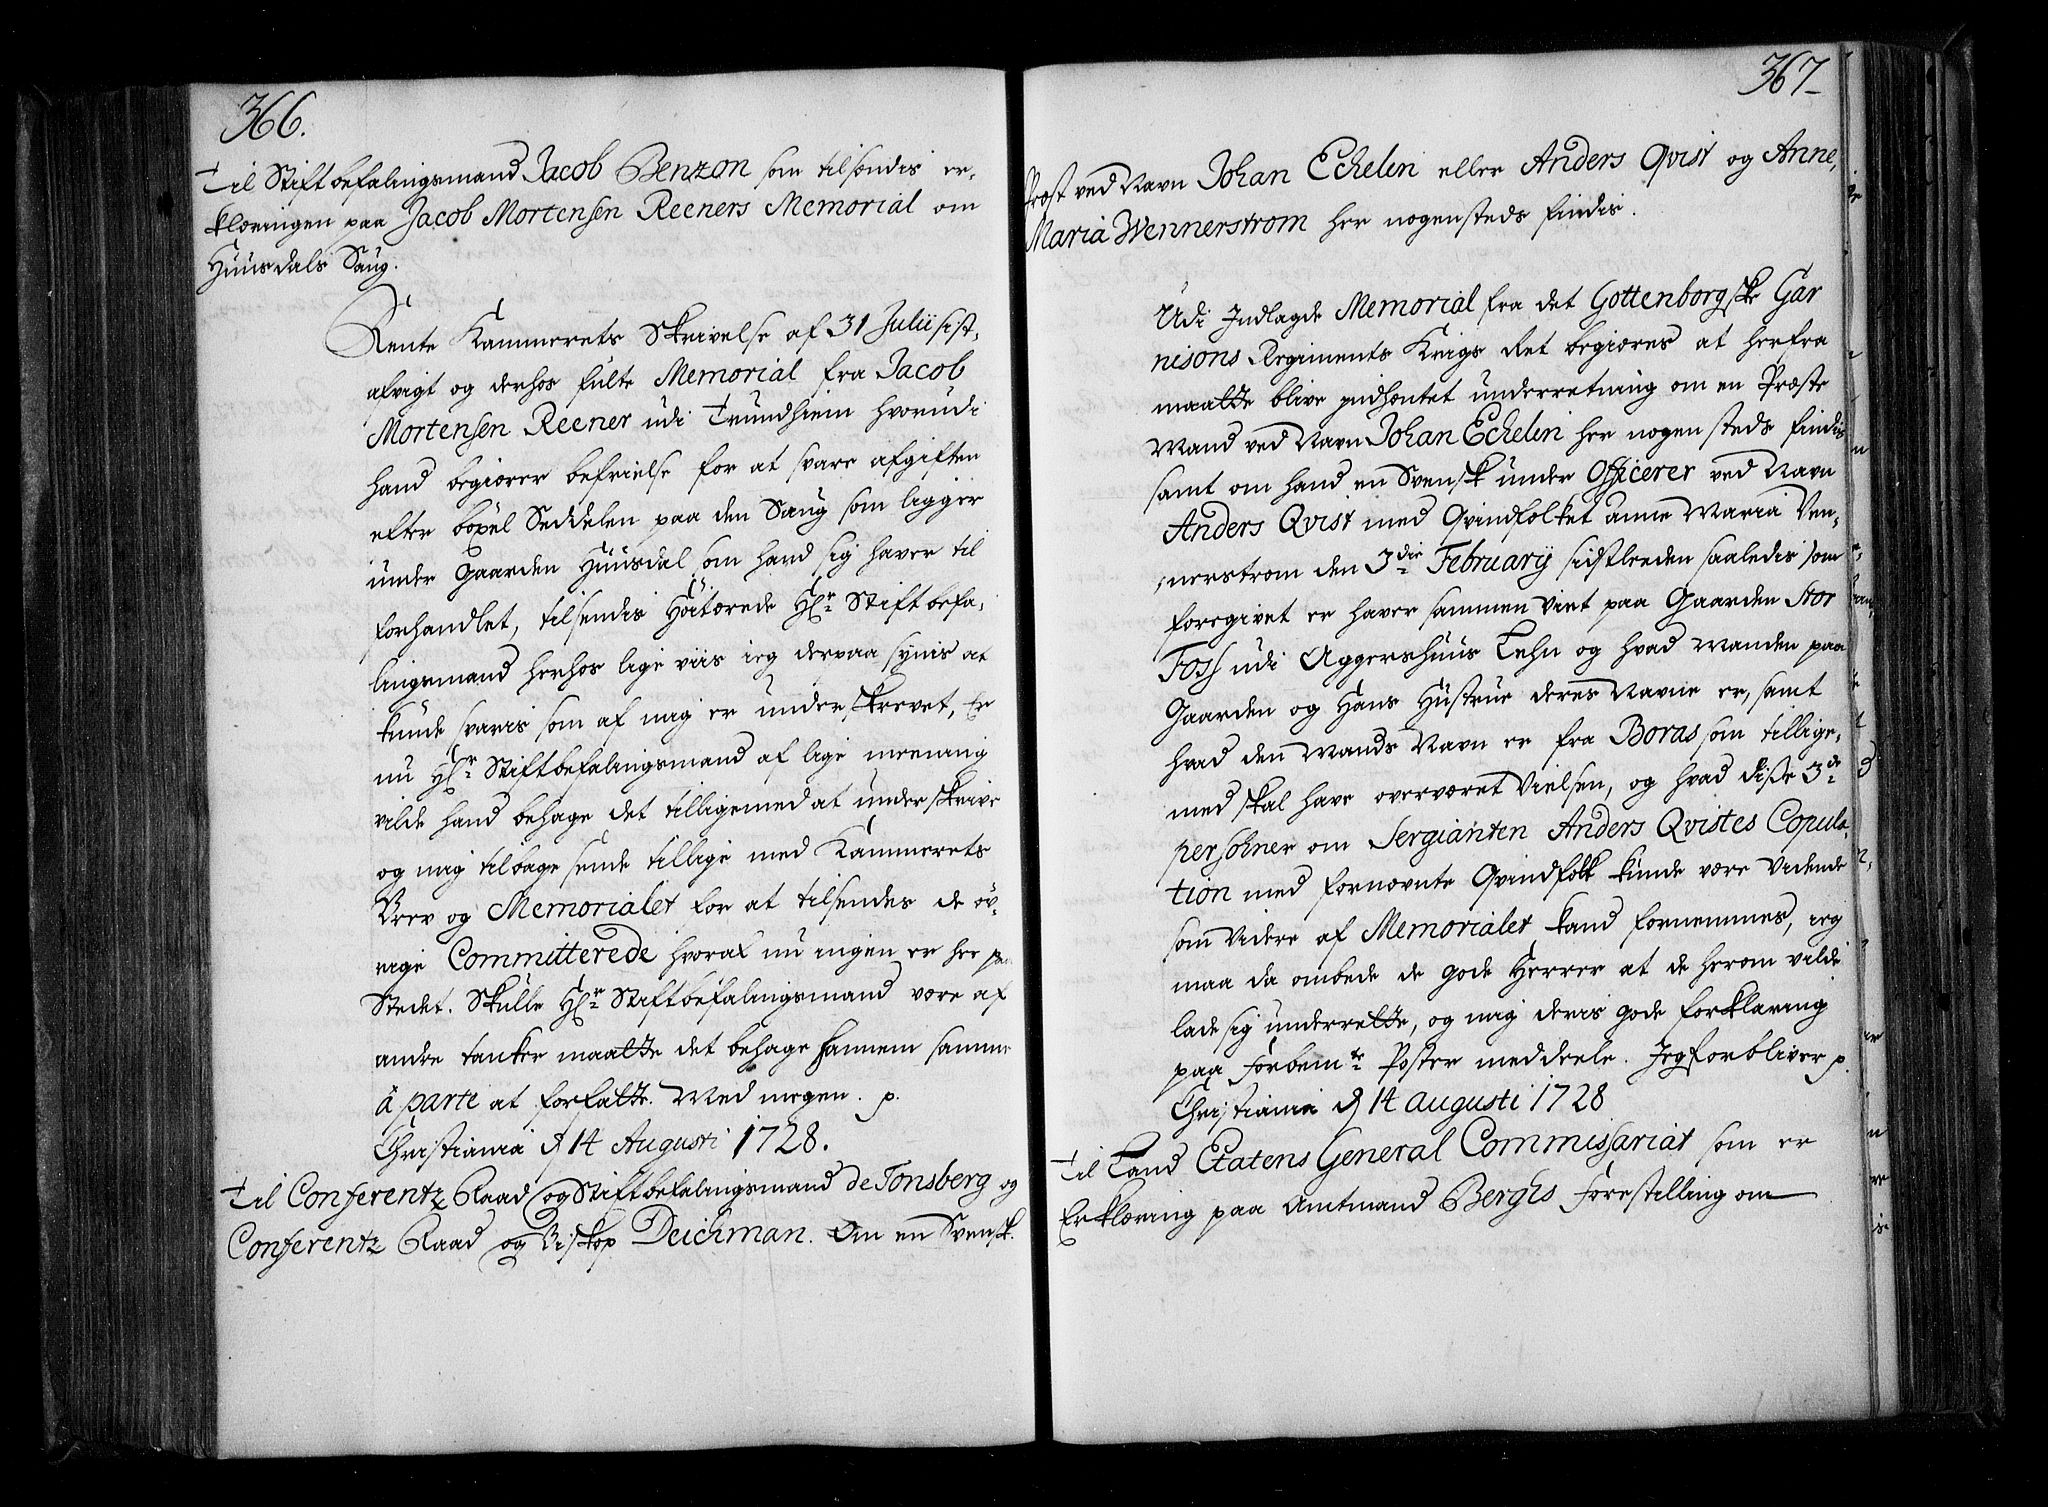 366.
Til Stiftbefalingsmand Jacob Benzon som tilsendis er,
klæringen paa Jacob Mortensen Reeners Memorial om
Huusdals Saug.
Rente Kammerets Skrivelse af 31 Julii sist,
afvigt og derhos fulte Memorial fra Jacob
Mortensen Reener udi Trundhiem hvorudi
hand begiærer befrielse for at svare afgiften
efter böxel Seddelen paa den Saug som ligger
under Gaarden Huusdal som hand sig haver til
forhandlet, tilsendis Höitærede Hr Stiftbefa,
lingsmand herhos lige viis ieg derpaa synis at
kunde svaris som af mig er underskrevet, Er
nu Hr Stiftbefalingsmand af lige meening
vilde hand behage det tilligemed at underskrive
og mig tilbage sende tillige med Kammerets
Brev og Memorialet for at tilsendes de öv,
rige Committerede hvoraf nu ingen er her paa
Stedet. Skulle Hr Stiftbefalingsmand være af
andre tanker maatte det behage hannem samme
à parte at forfatte. Med megen. p.
Christiania d 14 Augusti 1728.
Til Conferentz Raad og Stiftbefalingsmand de Tonsberg og
Conferentz Raad og Biskop Deichman. Om en Svensk
367
Præst ved Navn Johan Echelin eller Anders Qvist og Anne,
Maria Wennerstrom her nogensteds findis.
Udi Indlagde Memorial fra det Gottenborgske Gar
nisons Regiments Krigs Ret begiæres at herfra
maatte blive indhentet underretning om en Præste
Mand ved Navn Johan Echelin her nogensteds findis
samt om hand en Svensk under Officerer ved Navn
Anders Qvist med Qvindfolket Anne Maria Ven,
,nerstrom den 3die February sidstleeden saaledis som
foregivet er haver sammen Viet paa Gaarden Stor
Foss udi Aggershuus Lehn og hvad Manden paa
Gaarden og Hans Hustrue deres Navne er, samt
hvad den Mands Navn er fra Boras som tillige,
med skal have overværet Vielsen, og hvad disse 3de
persohner om Sergianten Anders Qvistes Copula,
tion med fornævnte Qvindfolk kunde være Vidende
som Videre af Memorialet kand fornemmes, ieg
maa da ombede de gode Herrer at de herom vilde
lade sig underrette, og mig deris gode forklaring
paa Forbemte Poster meddeele. Jeg forbliver p.
Christiania d 14 Augusti 1728
Til Land Etatens General Commissariat som er
Erklæring paa Amtmand Berghs Forestilling om